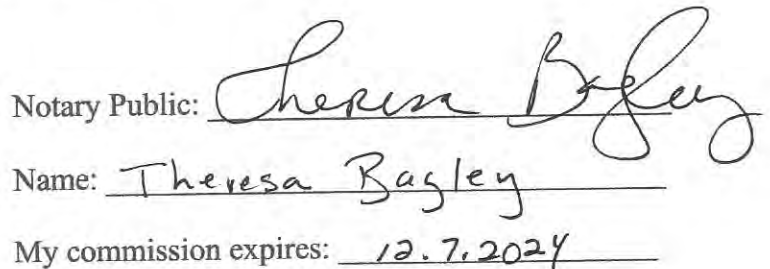 Notary Public: Theresa Bagley
Name: Theresa Bagley
My commission expires: 12.7.2024